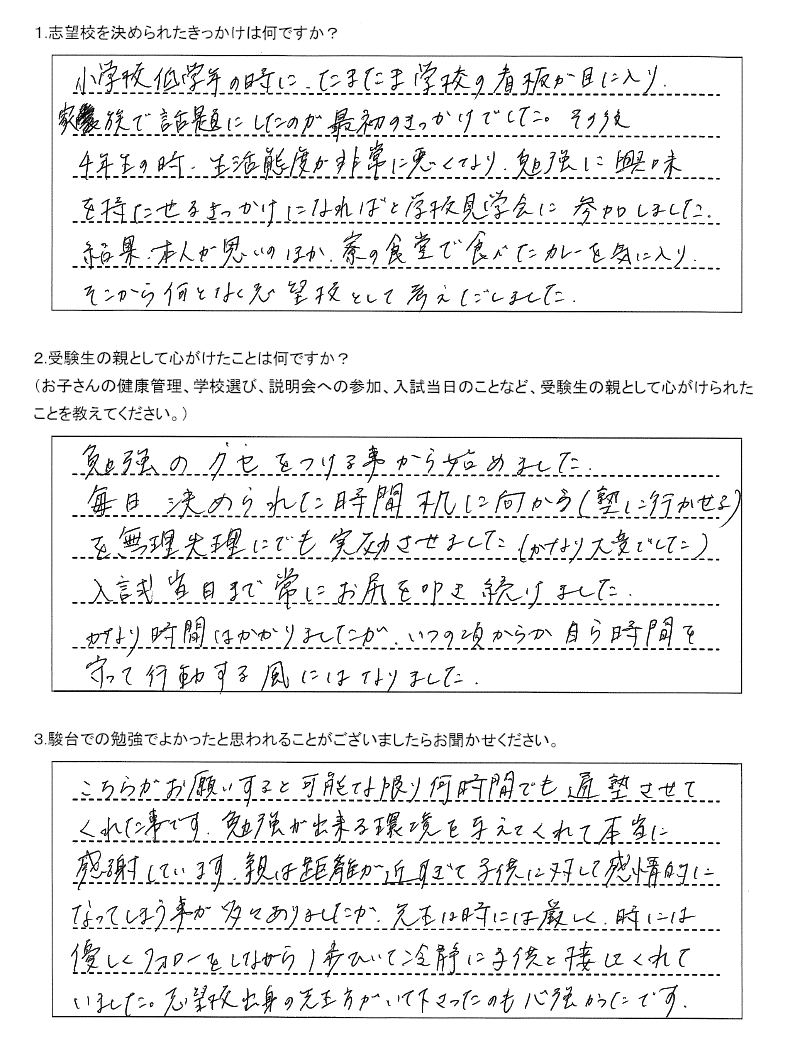 1.志望校を決められたきっかけは何ですか？
小学校低学年の時に、たまたま学校の看板が目に入り、
家族で話題にしたのが最初のきっかけでした。その後
4年生の時、生活態度が非常に悪くなり、勉強に興味
を持たせるきっかけになればと学校見学会に参加しました。
結果、本人が思いのほか、寮の食堂で食べたカレーを気に入り、
そこから何となく志望校として考えだしました。
2.受験生の親として心がけたことは何ですか？
（お子さんの健康管理、学校選び、説明会への参加、入試当日のことなど、受験生の親として心がけられた
ことを教えてください。）
勉強のグセをつける事から始めました。
毎日決められた時間机に向かう(塾に行かせる)
を無理矢理にでも実効させました(かなり大変でした)
入試当日まで常にお尻を叩き続けました。
かなり時間はかかりましたが、いつの頃からか自ら時間を
守って行動する風にはなりました。
3.駿台での勉強でよかったと思われることがございましたらお聞かせください。
こちらがお願いすると可能な限り何時間でも通塾させて
くれた事です。勉強が出来る環境を与えてくれて本当に
感謝しています。親は距離が近すぎて子供に対して感情的に
なってしまう事が多々ありましたが、先生は時には厳しく、時には
優しくフォローをしながら1歩ひいて冷静に子供と接してくれて
いました。志望校出身の先生方がいて下さったのも心強かったです。